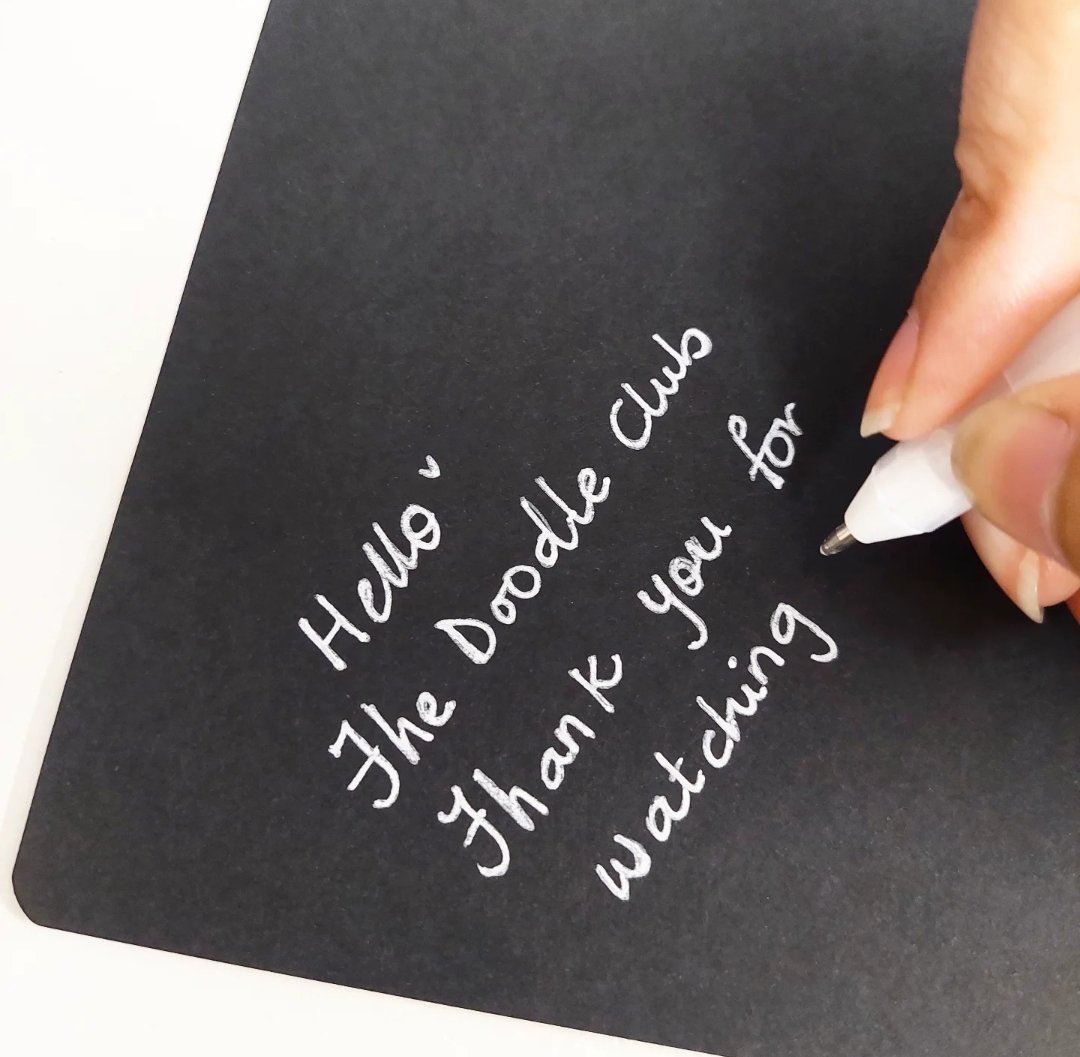 Hello
The Doodle Club
Thank you for
watching